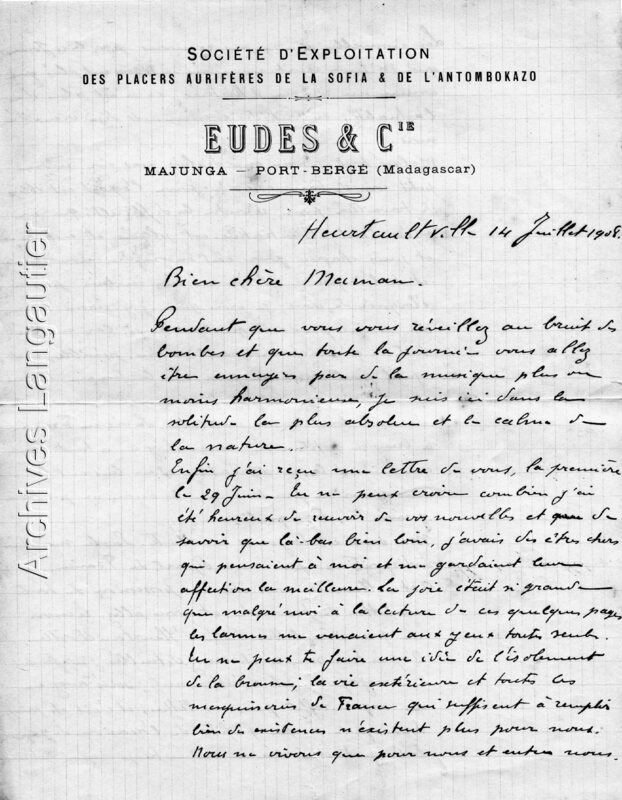 SOCIÉTÉ D'EXPLOITATION
DES PLACERS AURIFÈRES DE LA SOFIA & DE L'ANTOMBOKAZO
EUDES & CIE
MAJUNGA – PORT-BERGÉ (Madagascar)
Heurtaultville 14 Juillet 1908.
Bien chère Maman.
Pendant que vous vous réveillez au bruit des
bombes et que toute la journée vous allez
être ennuyés par de la musique plus ou
moins harmonieuse, je suis ici dans la
solitude la plus absolue et le calme de
la nature.
Enfin j'ai reçu une lettre de vous, la première
le 29 Juin. Tu ne peux croire combien j'ai
été heureux de recevoir de vos nouvelles et que de
savoir que là-bas bien loin, j'avais des êtres chers
qui pensaient à moi et me gardaient leur
affection la meilleure. La joie était si grande
que malgré moi à la lecture de ces quelques pages
les larmes me venaient aux yeux toutes seules.
Tu ne peux te faire une idée de l'isolement
de la brousse; la vie extérieure et toutes les
mesquineries de France qui suffisent à remplir
bien des existences n'existent plus pour nous.
Nous ne vivons que pour nous et entre nous.
Archives Langautier